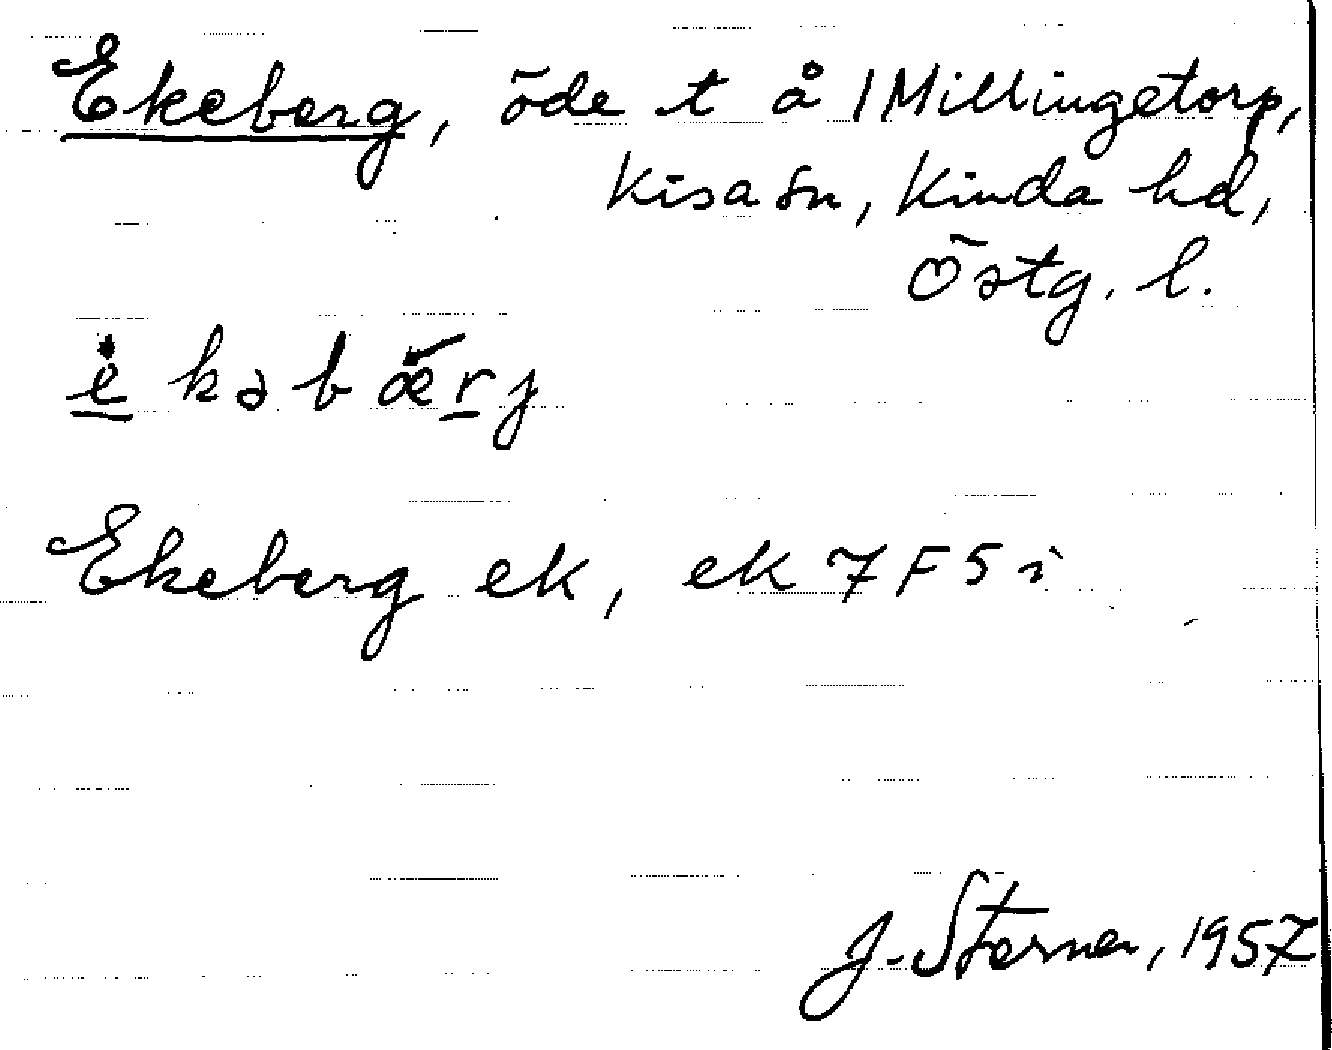 Ekeberg, öde t å 1 Millingetorp,
Kisa sn, Kinda hd,
Östg. l.
e̱kəbæ̀ṟj
Ekeberg ek, ek 7 F 5 i
J. Sterner, 1957